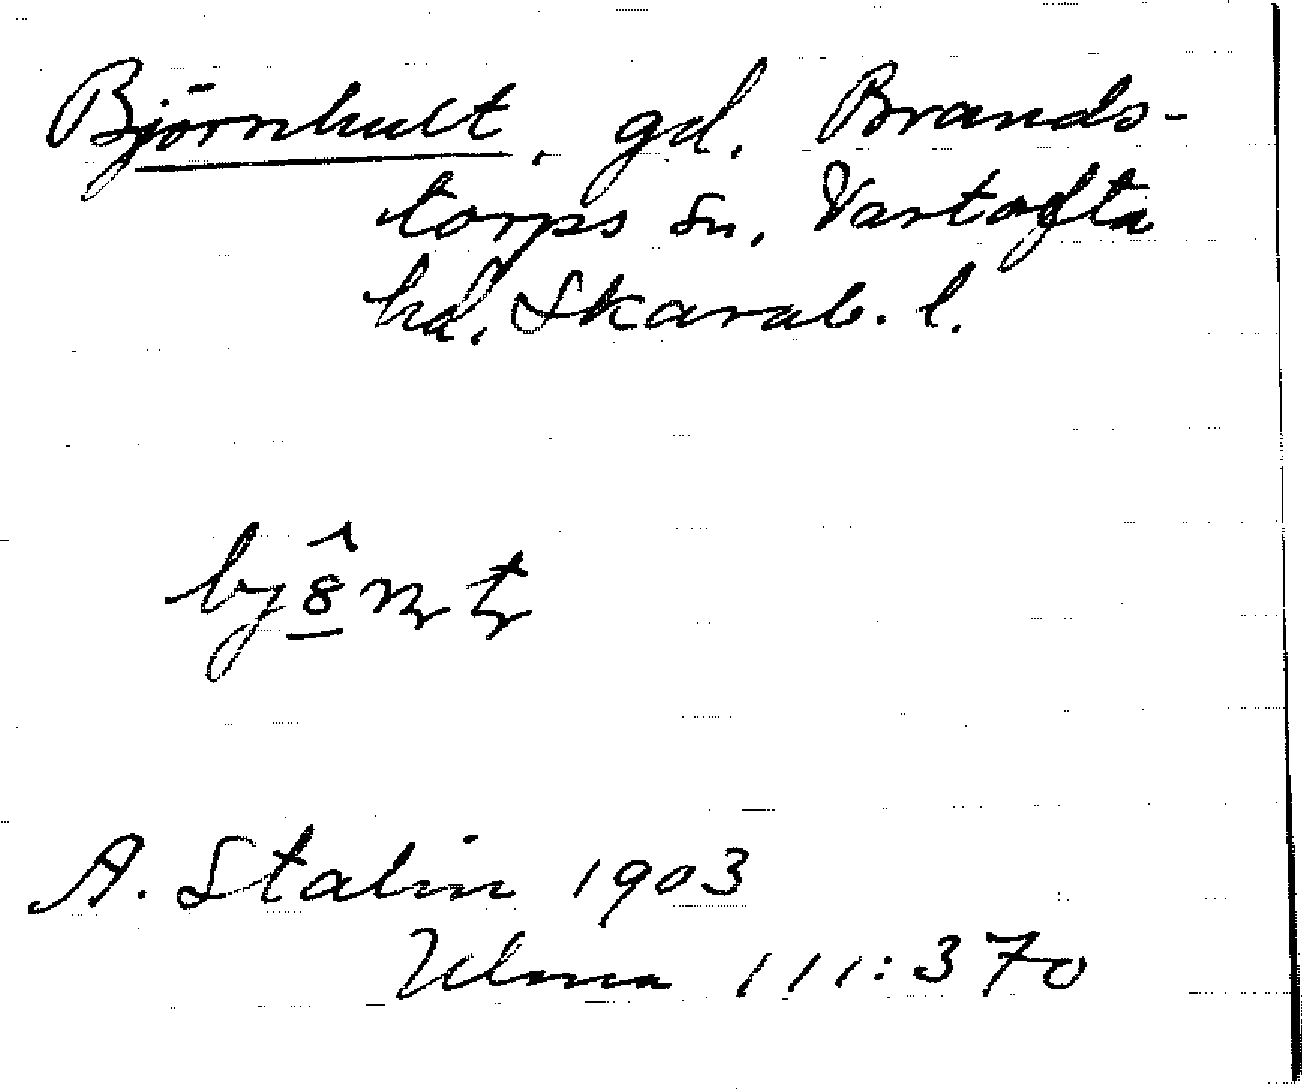 Björnhult, gd. Brands-
torps sn, Vartofta
hd. Skarab. l.
A. Stalin 1903
Ulma 111:370